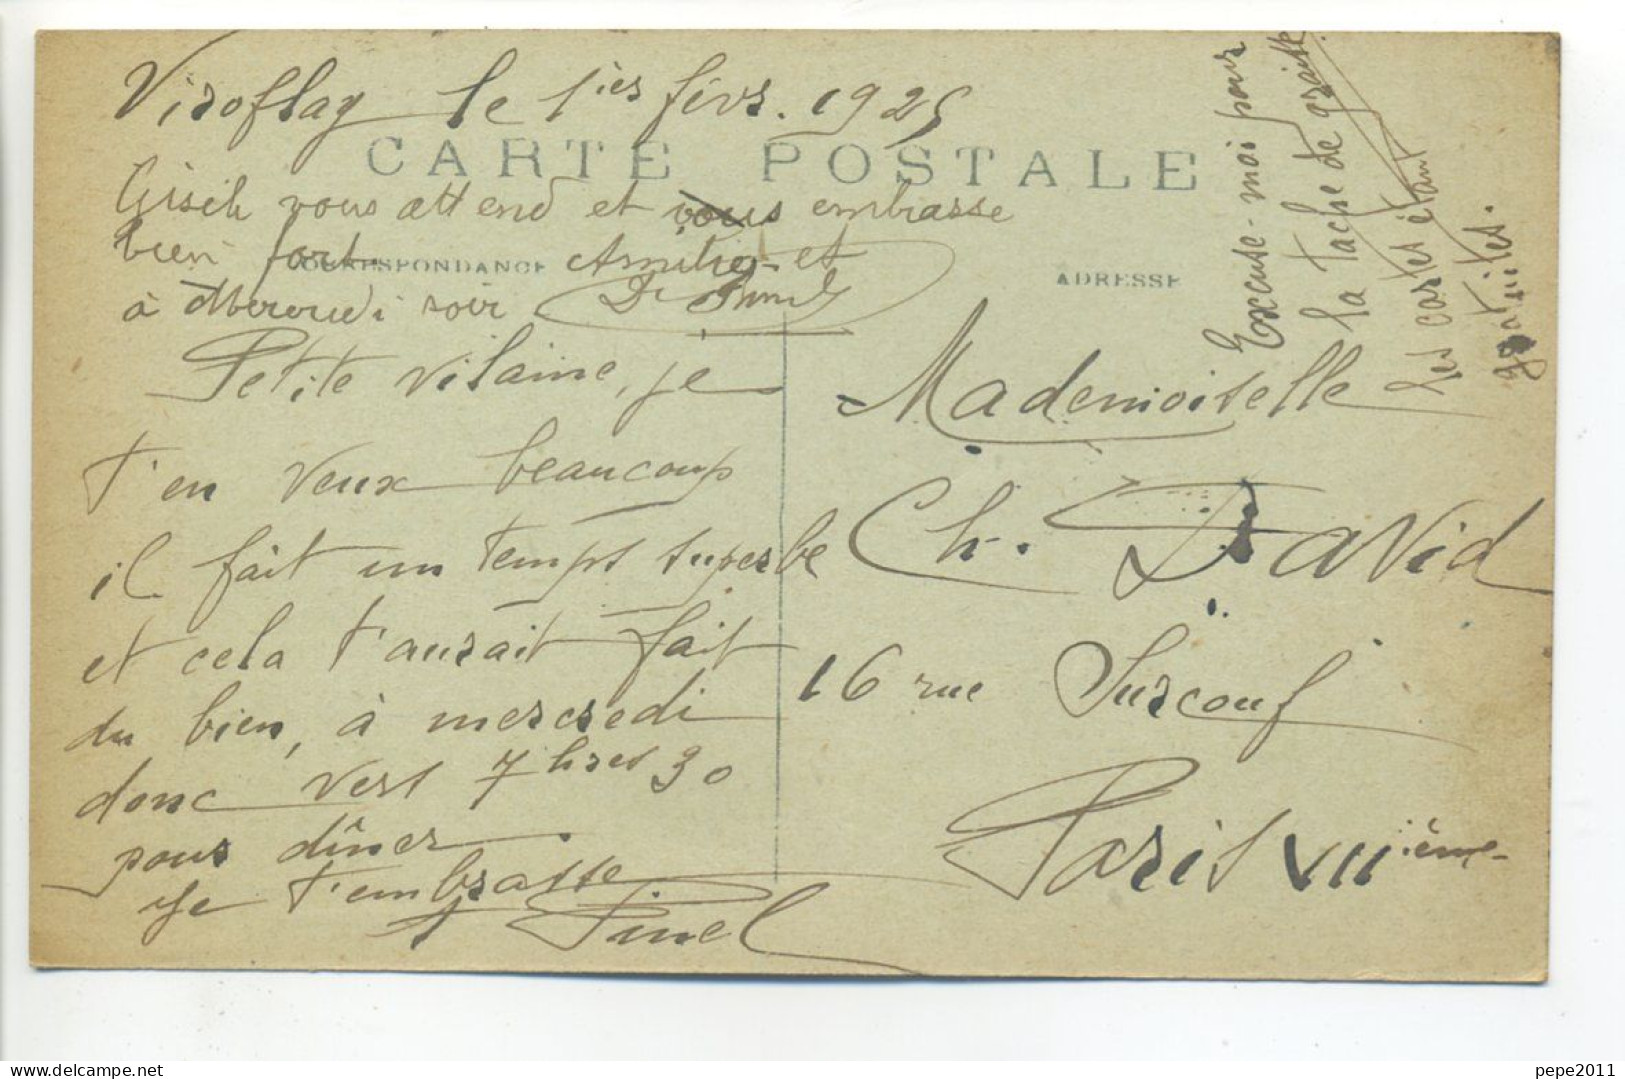 Viroflay le 1ier févr. 1925
CARTE POSTALE
Gisèle vous attend et vous embrasse
bien fort Amitiés et
CORRESPONDANCE
à Mercredi soir
Petite vilaine, je
t'en veux beaucoup
il fait un temps superbe
et cela t'aurait fait
du bien, à mercredi
donc vers 7 hres 30
pour dîner
Je t'embrasse
Pinel
ADRESSE
Mademoiselle
Ch. David
16 rue Surcouf
Paris VIIième
Excuse-moi pour
la tache de graisse
les cartes étant
gratuites.
Website : delcampe.net
pepe2011